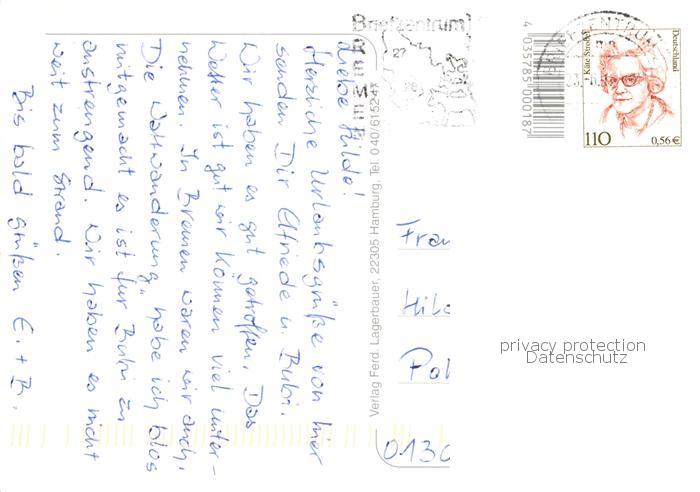 Liebe Hilde!
Herzliche Urlaubsgrüße von hier
senden Dir Elfriede u. Bubi.
Wir haben es gut getroffen. Das
Wetter ist gut wir können viel unter-
nehmen. In Bremen waren wir auch.
Die "Wattwanderung" habe ich blos
mitgemacht es ist für Bubi zu
anstrengend. Wir haben es nicht
weit zum Strand.
Bis bald grüßen E. + B.
Verlag Ferd. Lagerbauer, 22305 Hamburg, Tel. 040/615241
Briefzentrum
27
28
4 035785 000187
BRIEFZENTRUM
Käte Strobel
Deutschland
110
0,56€
Frau
Hild
Pol
0130
privacy protection
Datenschutz